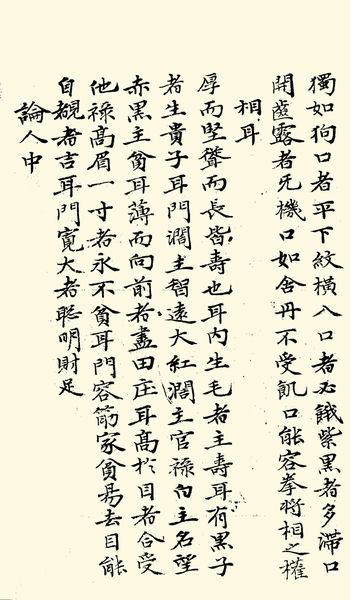 獨如狗口者平下紋橫入口者必餓紫黑者多滯口
開齒露者死機口如含丹不受飢口能容拳將相之權
相耳
厚而堅聳而長皆壽也耳内生毛者主壽耳有黑子
者生貴子耳門濶主智遠大紅濶主官祿白主名望
赤黑主貧耳薄而向前者盡田庄耳高於目者合受
他祿高眉一寸者永不貧耳門容筯家貧易去目能
自覩者吉耳門寬大者聰明財足
論人中